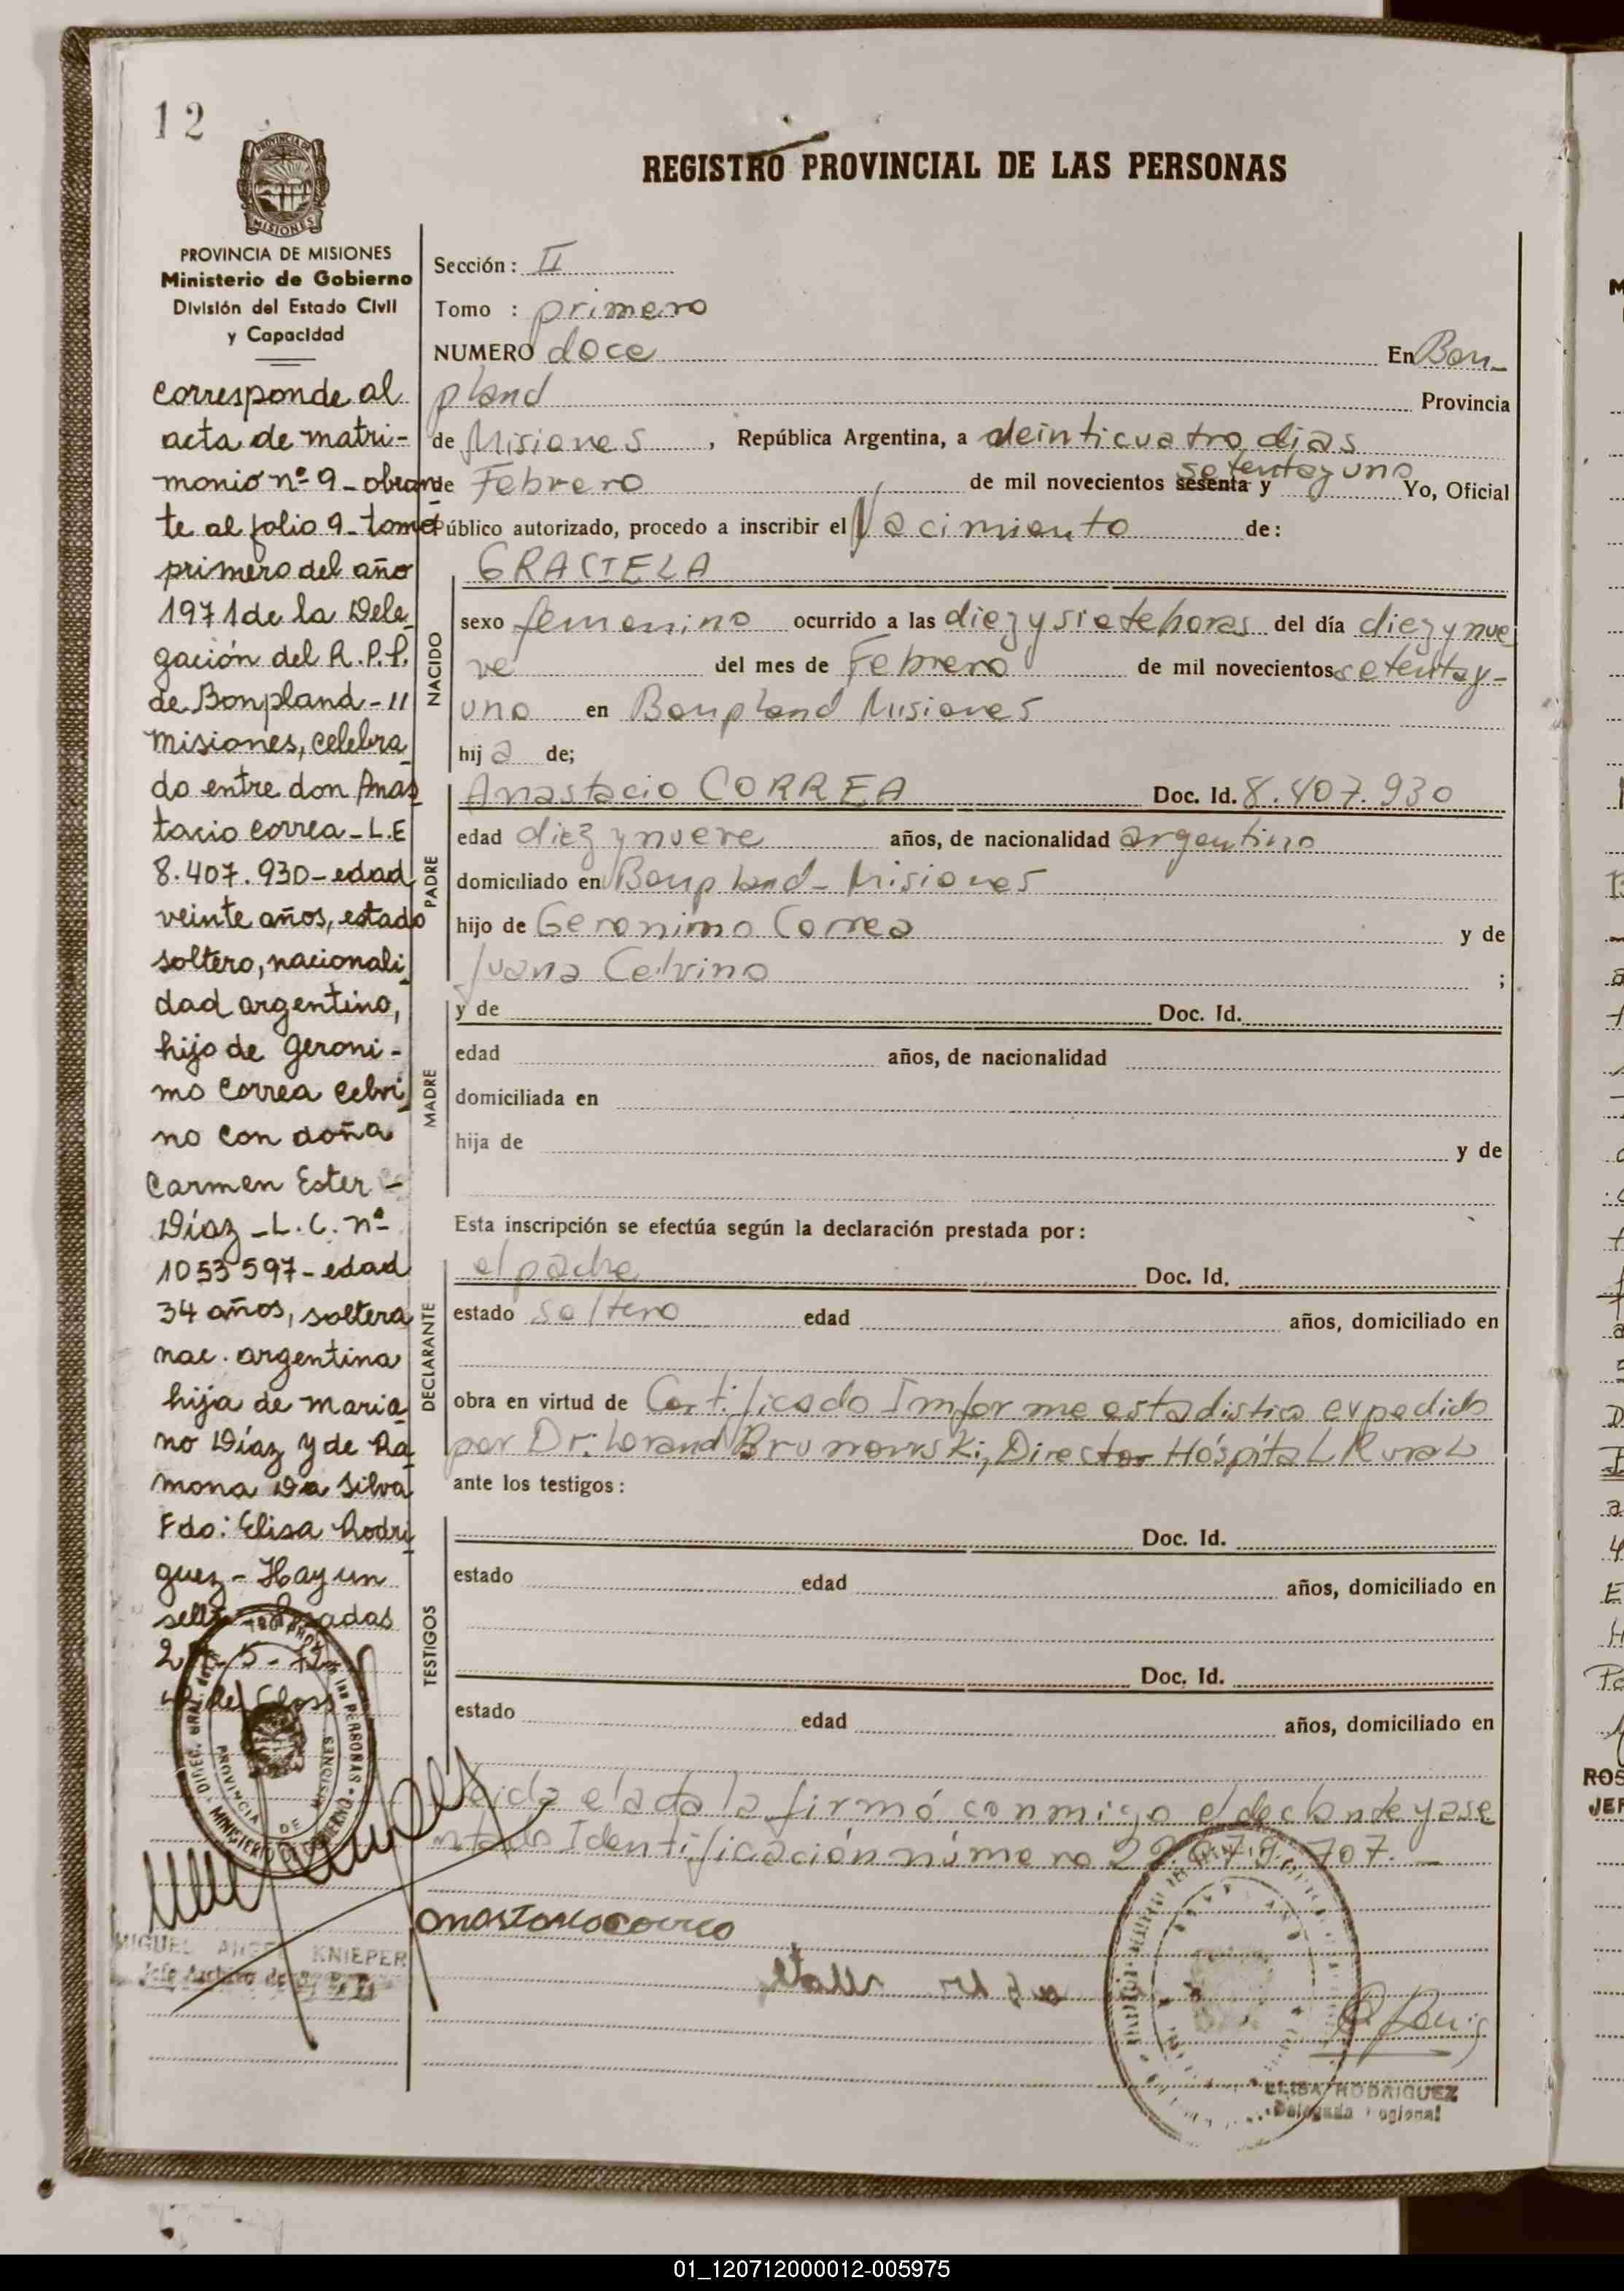 12
REGISTRO PROVINCIAL DE LAS PERSONAS
PROVINCIA DE MISIONES
Ministerio de Gobierno
División del Estado Civil
y Capacidad
corresponde al
acta de matri-
monio nº 9 - obran
te al folio 9 - tomo
primero del año
1971 de la Dele_
gación del R.P.P.
de Bonpland - 11
misiones, celebra_
do entre don Anas_
tacio correa - L.E
8.407.930 - edad
veinte años, estado
soltero, nacionali_
dad argentino,
hijo de geroni-
mo Correa celvi_
no con doña
Carmen Ester -
Díaz - L.C. nº
1053597 - edad
34 años, soltera
nac. argentina
hija de maria_
no Díaz y de Ra_
mona Da Silva
Fdo: Elisa Rodri_
guez - Hay un
sello Posadas
5 - 72
MIGUEL ANGEL KNIEPER
Jefe Archivo de
Sección: II
Tomo : primero
NUMERO doce En Bon_
pland Provincia
de Misiones, República Argentina, a veinticuatro dias
de Febrero de mil novecientos sesenta y setenta y uno Yo, Oficial
Público autorizado, procedo a inscribir el Nacimiento de:
NACIDO
GRACIELA
sexo femenino ocurrido a las diez y siete horas del día diez y nue
ve del mes de Febrero de mil novecientos setenta y-
uno en Bonpland Misiones
hij a de;
PADRE
Anastacio CORREA Doc. Id. 8.407.930
edad diez y nueve años, de nacionalidad argentino
domiciliado en Bonpland - Misiones
hijo de Geronimo Correa y de
Juana Celvino ;
MADRE
y de Doc. Id.
edad años, de nacionalidad
domiciliada en
hija de y de
Esta inscripción se efectúa según la declaración prestada por:
DECLARANTE
el padre Doc. Id.
estado soltero edad años, domiciliado en
obra en virtud de Certificado Informe estadistico expedido
por Dr: Lorand Brunowski, Director Hóspital Rural
ante los testigos:
TESTIGOS
Doc. Id.
estado edad años, domiciliado en
Doc. Id.
estado edad años, domiciliado en
Leida el acta la firmó conmigo el
Identificación número 707. -
anastacio correa
ELISA RODRIGUEZ
Delegada Regional
01_120712000012-005975